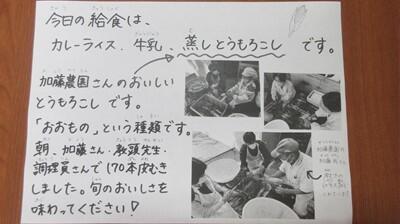 今日の給食は、
カレーライス、牛乳、蒸しとうもろこし です。
加藤農園さんのおいしい
とうもろこし です。
「おおもの」という種類です。
朝、加藤さん・教頭先生・
調理員さんで170本皮むき
しました。旬のおいしさを
味わってください!